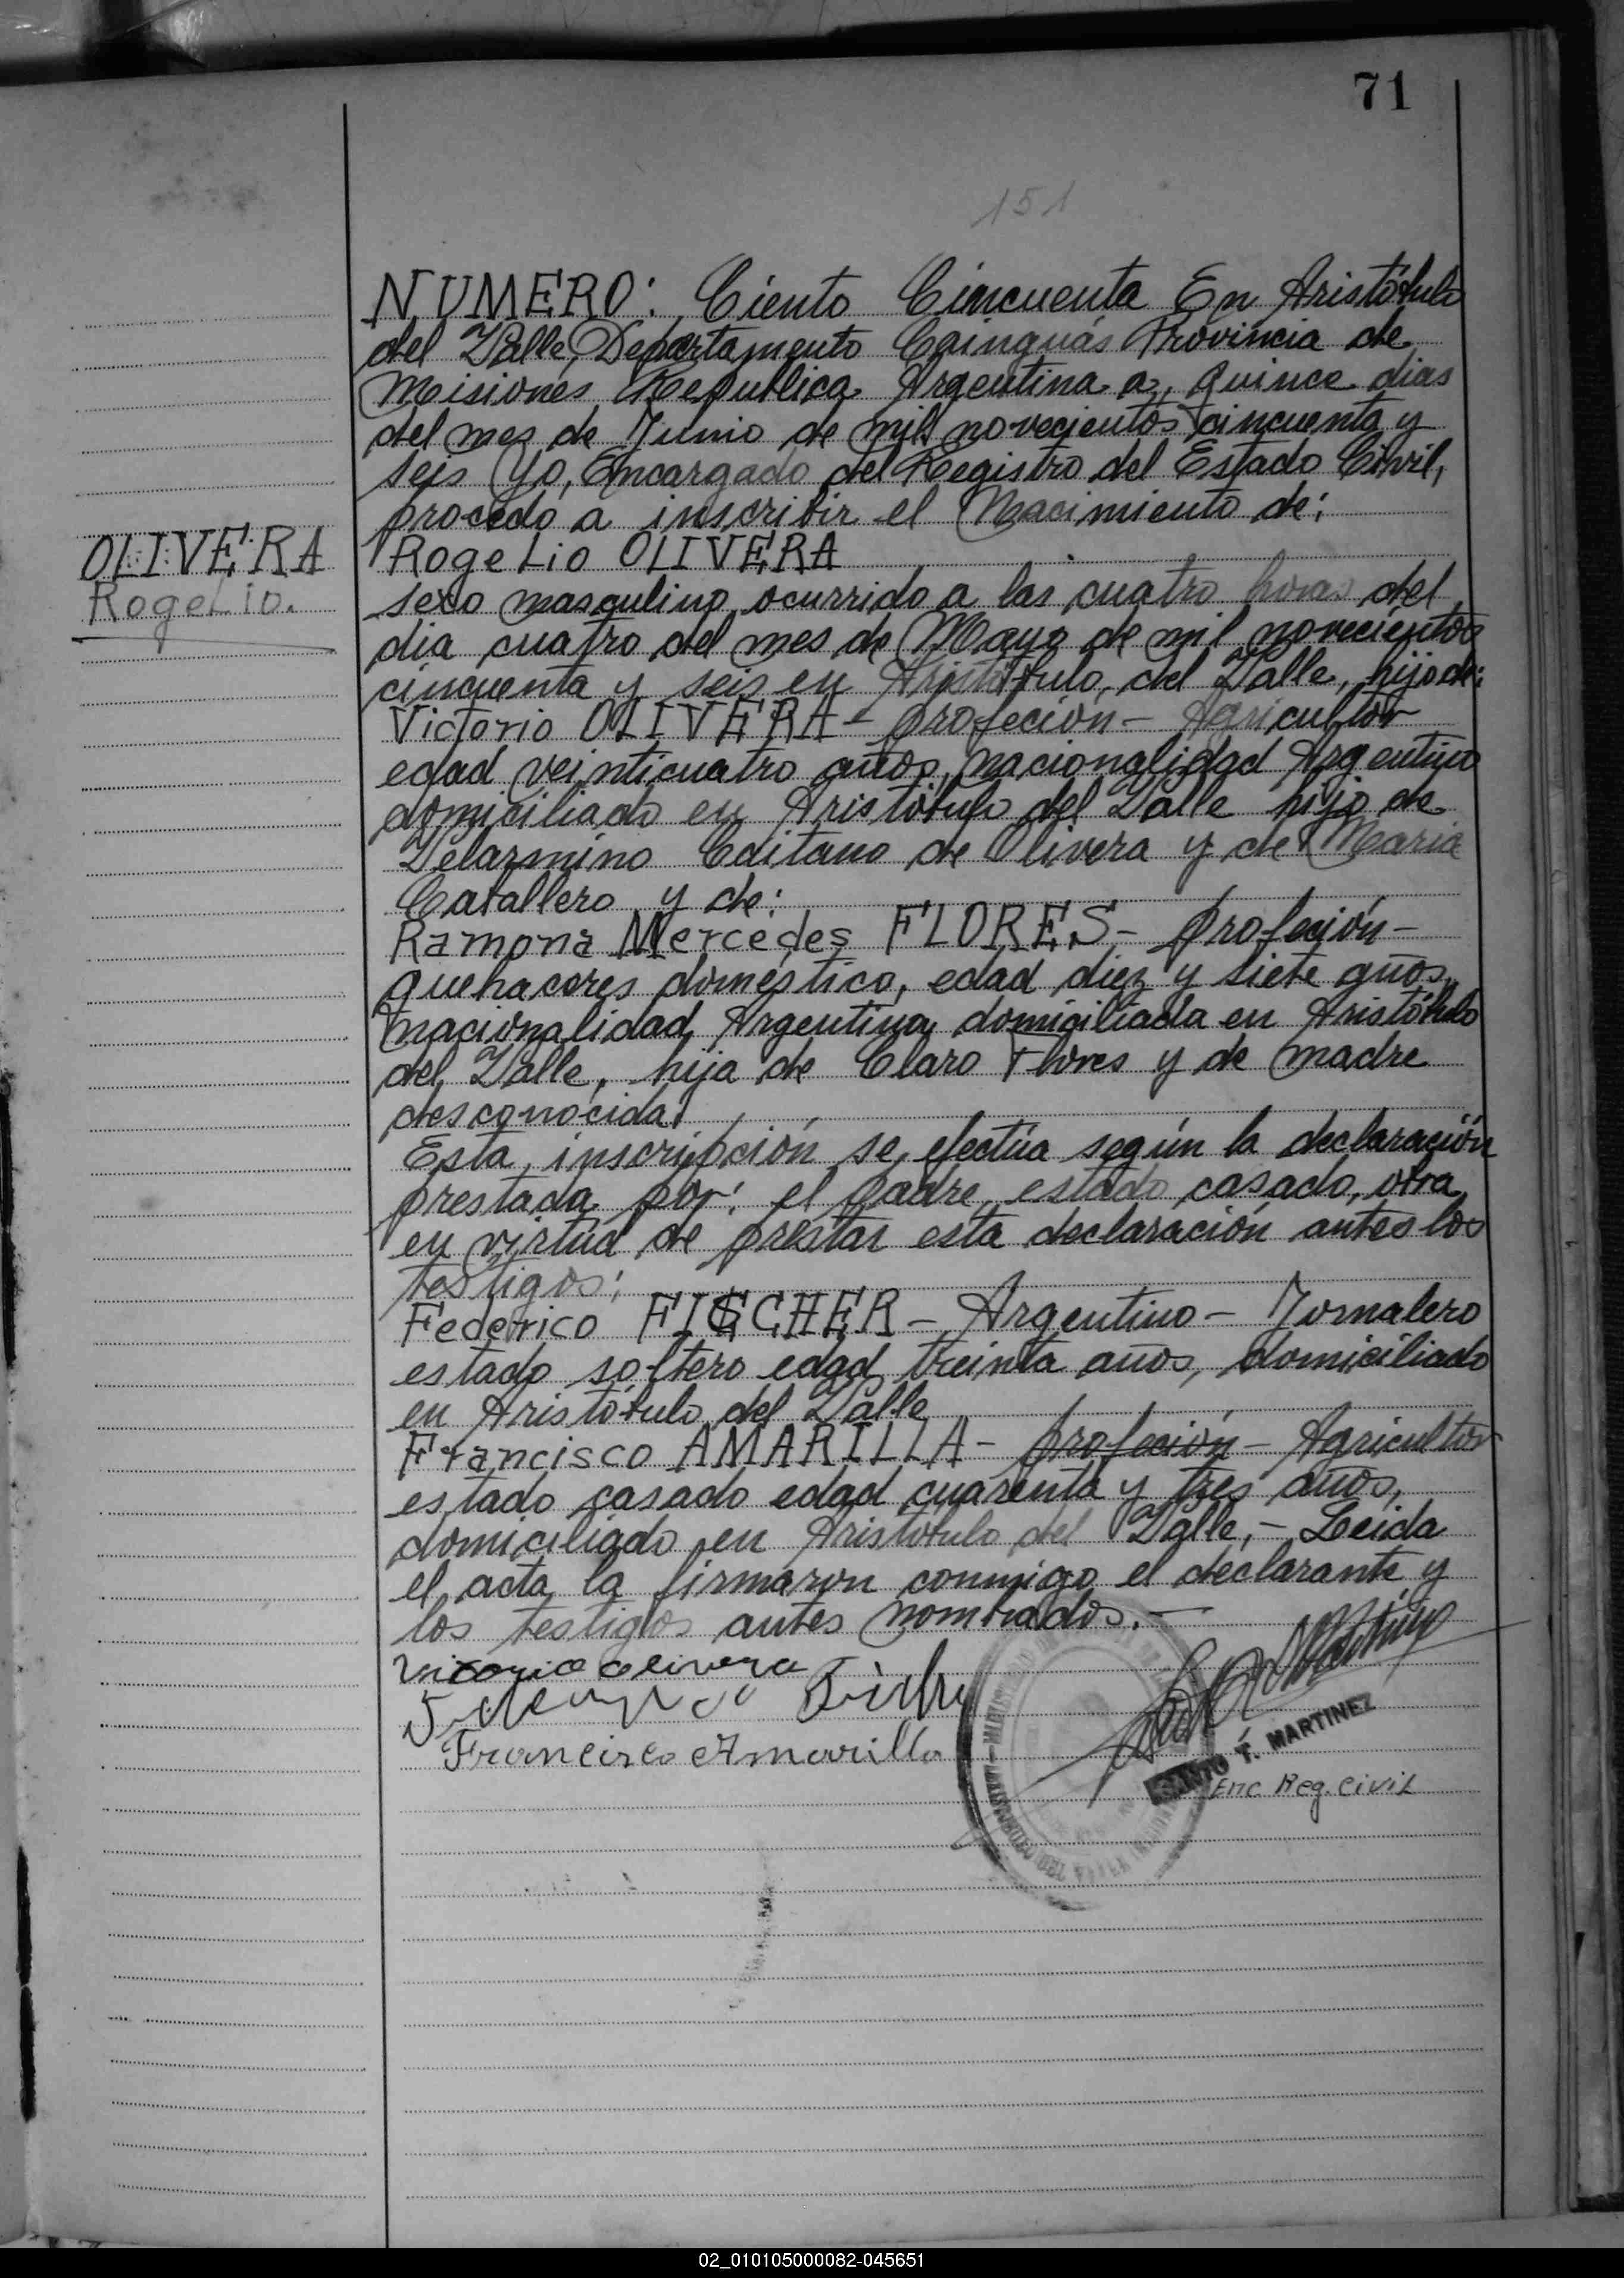 71
151
NUMERO: Ciento Cincuenta En Aristóbulo
del Valle, Departamento Cainguás Provincia de
Misiones Republica Argentina a, quince dias
del mes de Junio de mil novecientos cincuenta y
seis Yo, Encargado del Registro del Estado Civil,
procedo a inscribir el Nacimiento de:
OLIVERA
Rogelio.
Rogelio OLIVERA
sexo masculino, ocurrido a las cuatro horas del
dia cuatro del mes de Mayo de mil novecientos
cincuenta y seis en Aristóbulo, del Valle, hijo de:
Victorio OLIVERA - profeción - Agricultor
edad veinticuatro años, nacionalidad Argentino
domiciliado en Aristóbulo del Valle hijo de
Velarmino Caitano de Olivera y de Maria
Caballero y de:
Ramona Mercedes FLORES - profeción -
quehacores doméstico, edad diez y siete años,
nacionalidad Argentina domiciliada en Aristóbulo
del Valle, hija de Claro Flores y de madre
desconocida.
Esta inscripción se efectúa según la declaración
prestada por: el padre, estado casado, obra
en virtud de prestar esta declaración antes los
testigos:
Federico FISCHER - Argentino - Jornalero
estado soltero edad treinta años, domiciliado
en Aristóbulo del Valle
Francisco AMARILLA - profeción - Agricultor
estado casado edad cuarenta y tres años,
domiciliado en Aristóbulo del Valle, - Leida
el acta la firmaron conmigo el declarante y
los testigos antes nombrados. -
Vitorio Olivera
Francisco Amarilla
SANTO T. MARTINEZ
Enc Reg. Civil
02_010105000082-045651